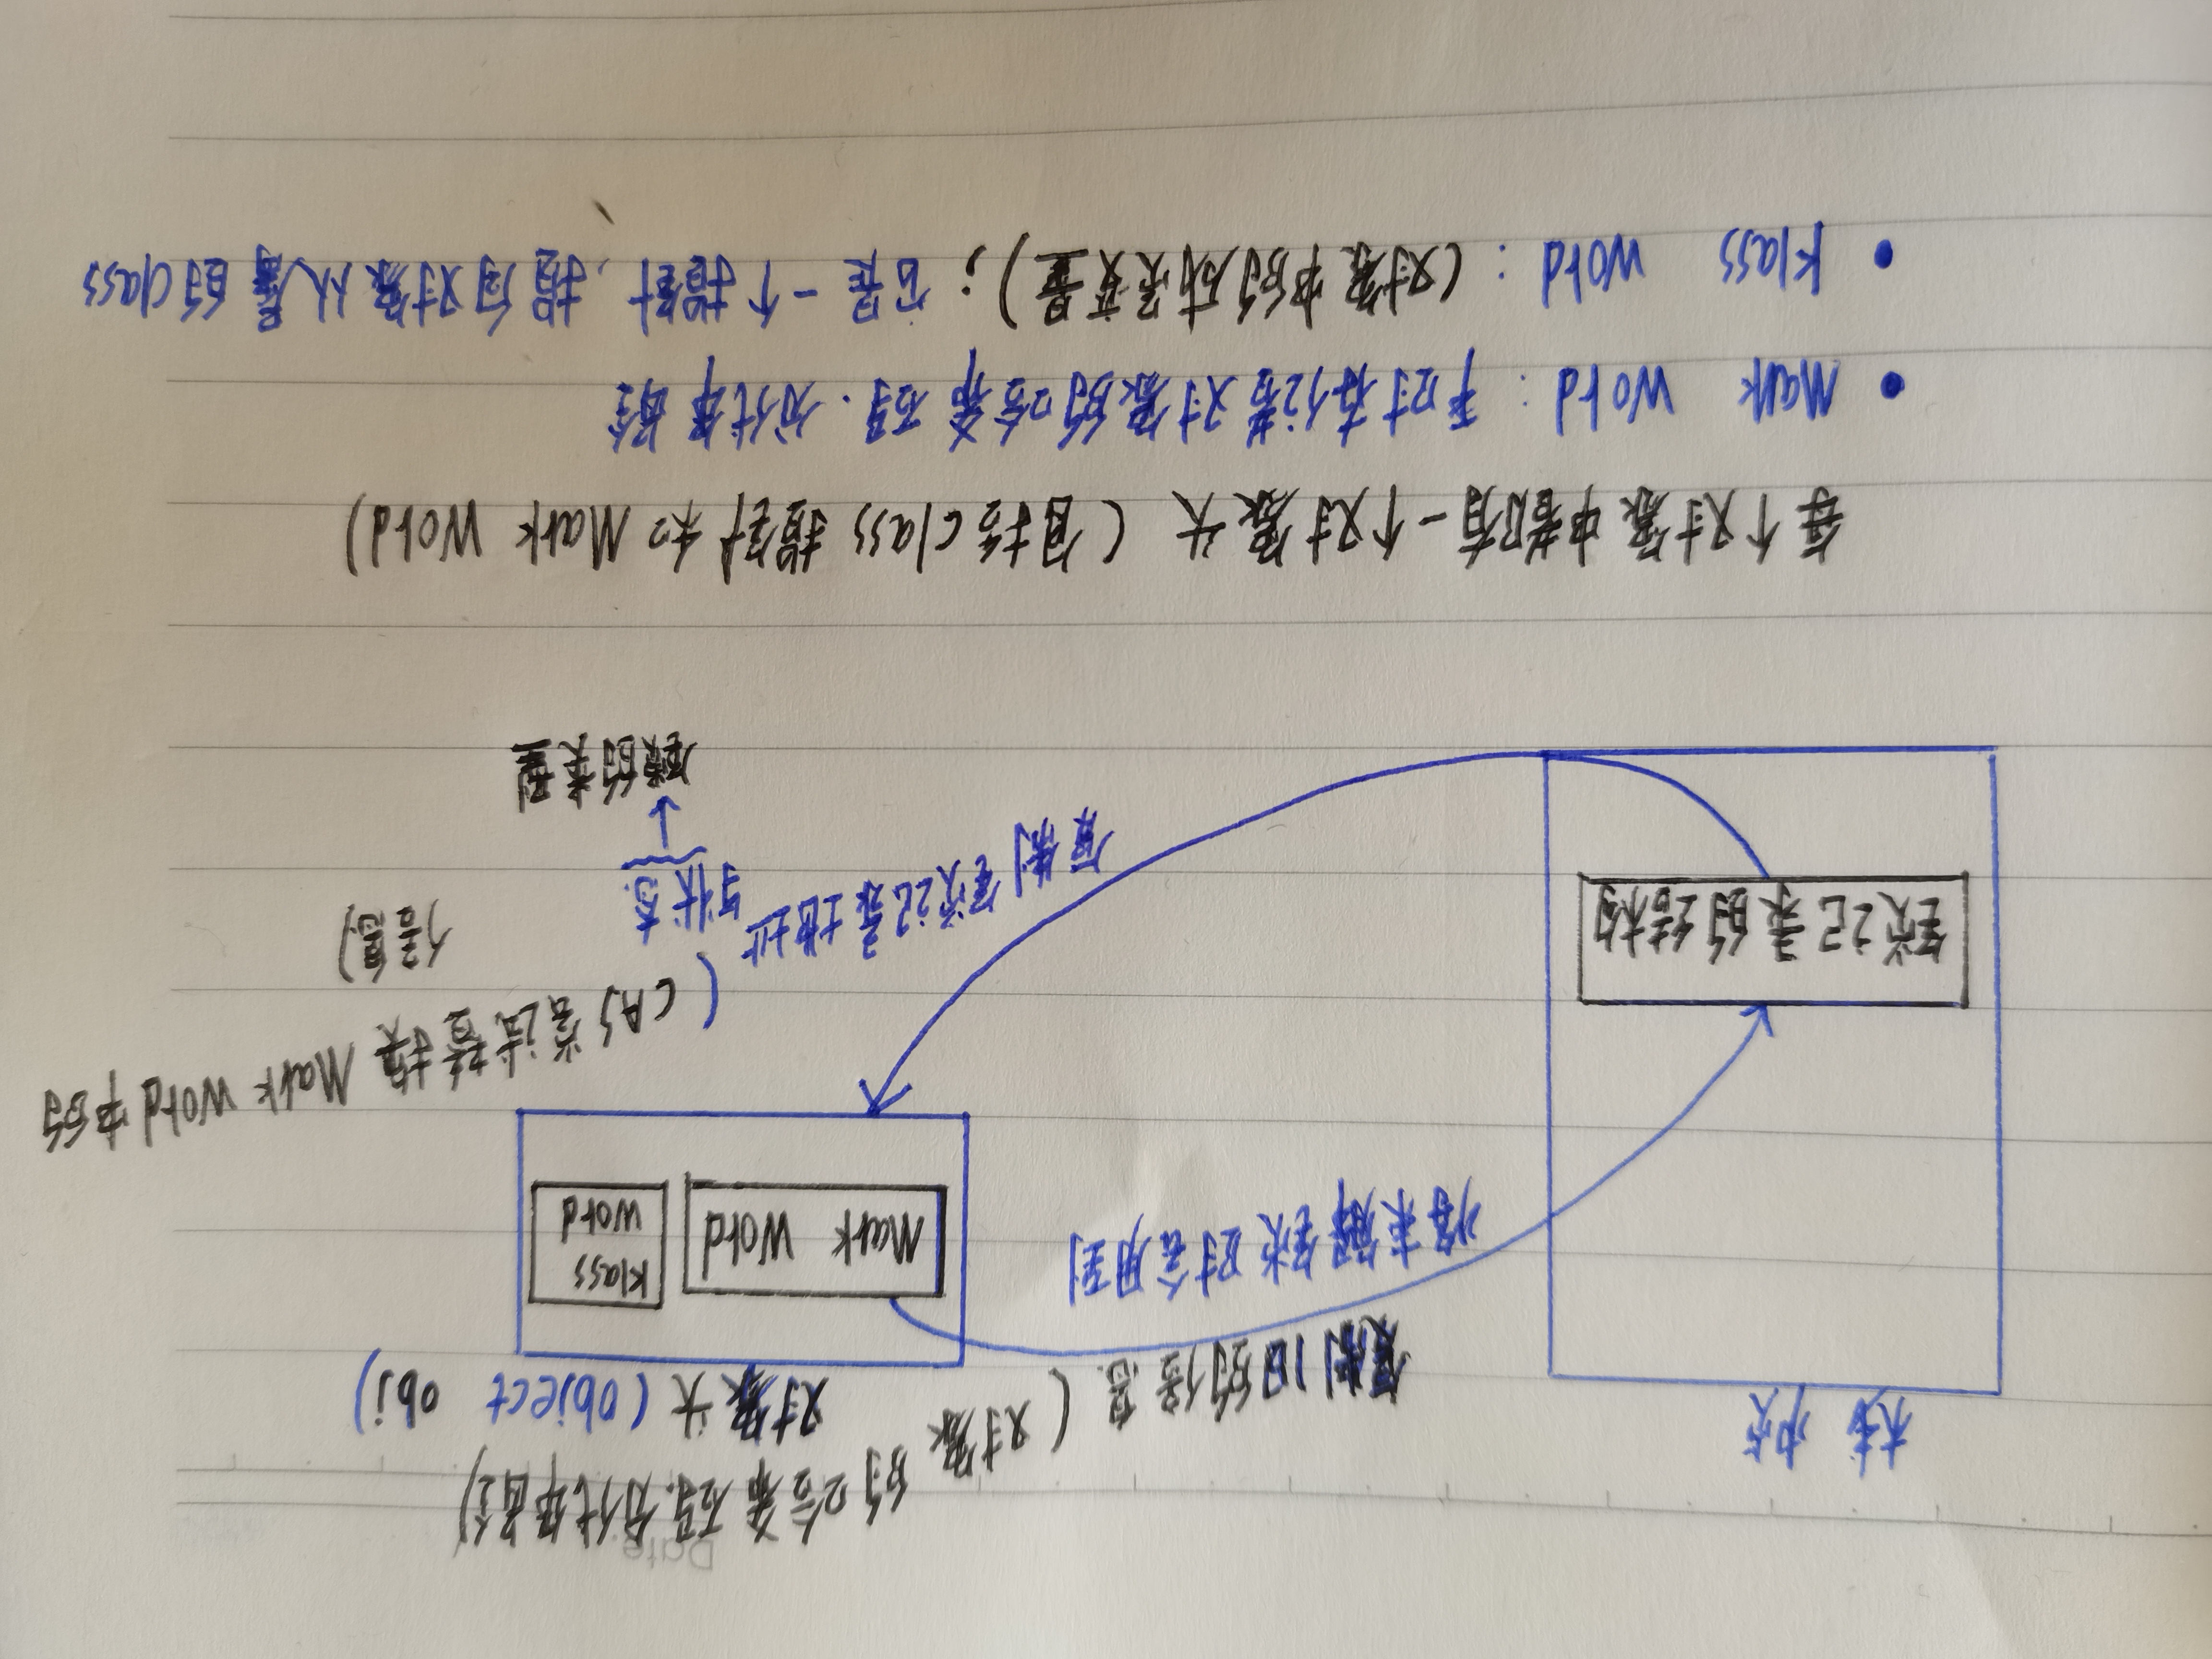 Date
栈帧
复制旧的信息(对象的哈希码.分代年龄)
对象头(object obj)
将来解锁时会用到
Mark Word
klass
word
锁记录的结构
复制锁记录地址与状态
(CAS尝试替换Mark word中的
信息)
锁的类型
每个对象中都有一个对象头(包括class指针和Mark Word)
• Mark Word:平时存住着对象的哈希码.分代年龄
• klass word:(对象中的成员变量);它是一个指针,指向对象从属的class